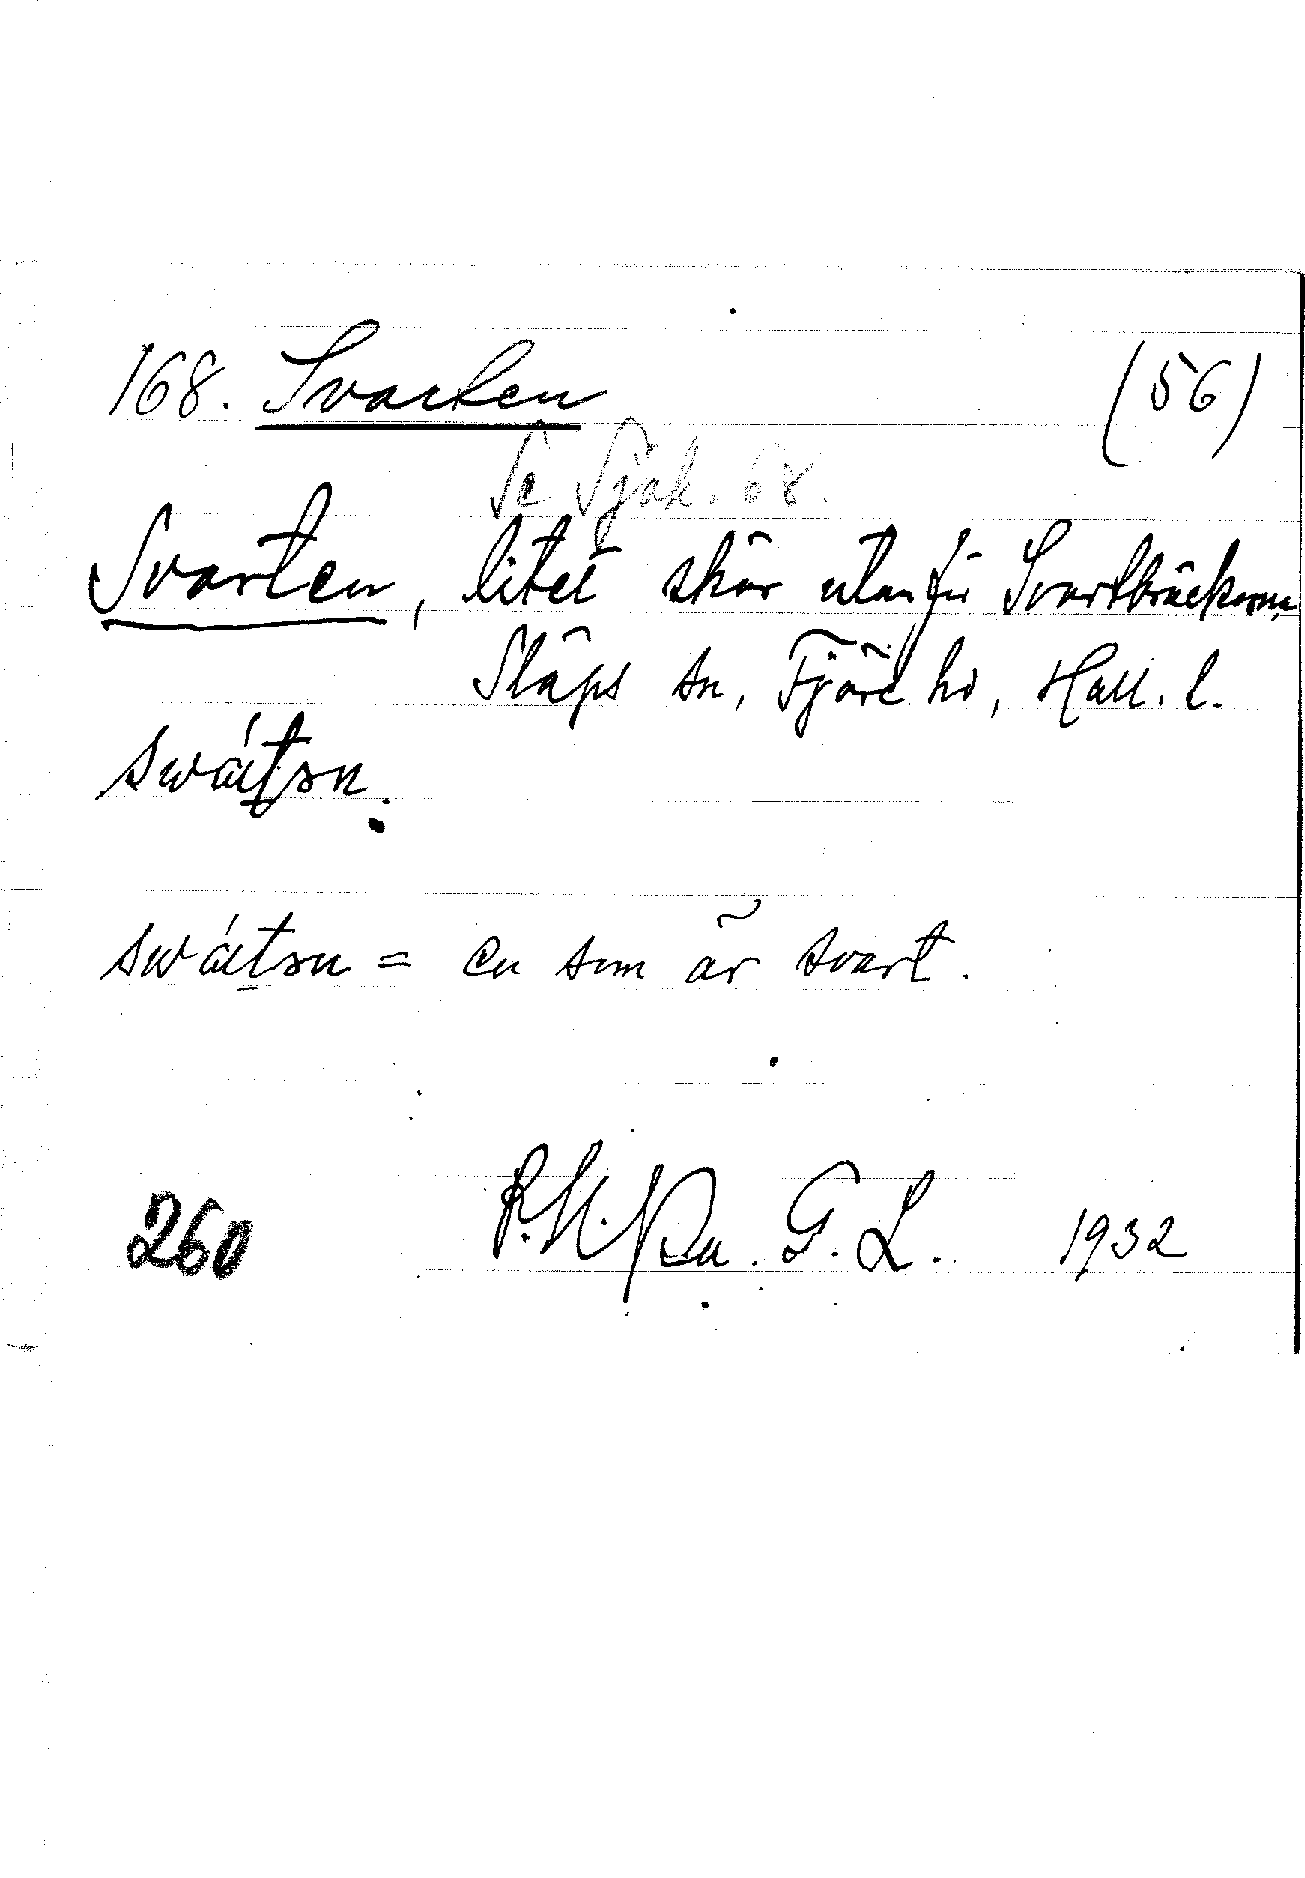 168. Svarten (56)
Se Sjök. 68.
Svarten, litet skär utanför Svartbräckorna,
Släps sn, Fjäre hd, Hall. l.
swátən.
swátən = en som är svart.
260 G. L. 1932